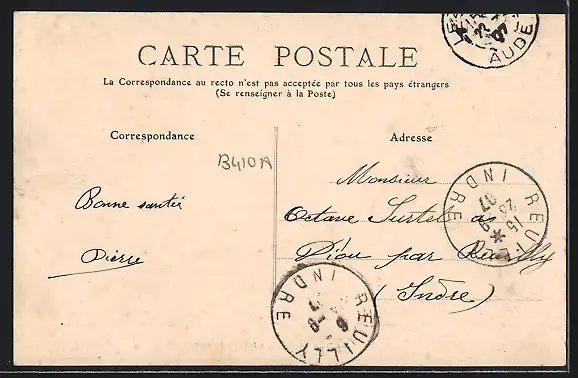 CARTE POSTALE
La Correspondance au recto n'est pas acceptée par tous les pays étrangers
(Se renseigner à la Poste)
Correspondance
Adresse
B410A
Bonne santé
Pierre
Monsieur
Octave Surtel
Diou par Reuilly
(Indre)
AUDE
REUILLY
INDRE
REUILLY
INDRE